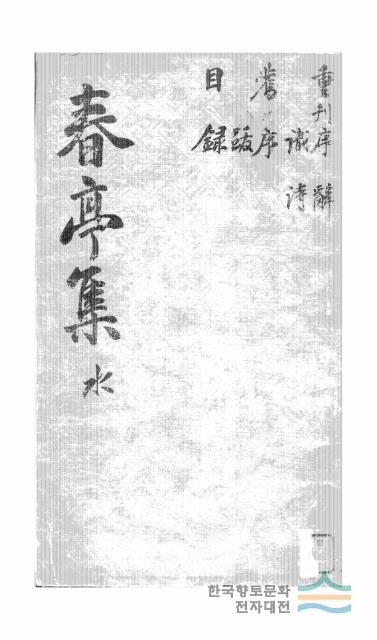 重刊序 辭
識 詩
舊序
跋
目録
春亭集 水
한국향토문화
전자대전